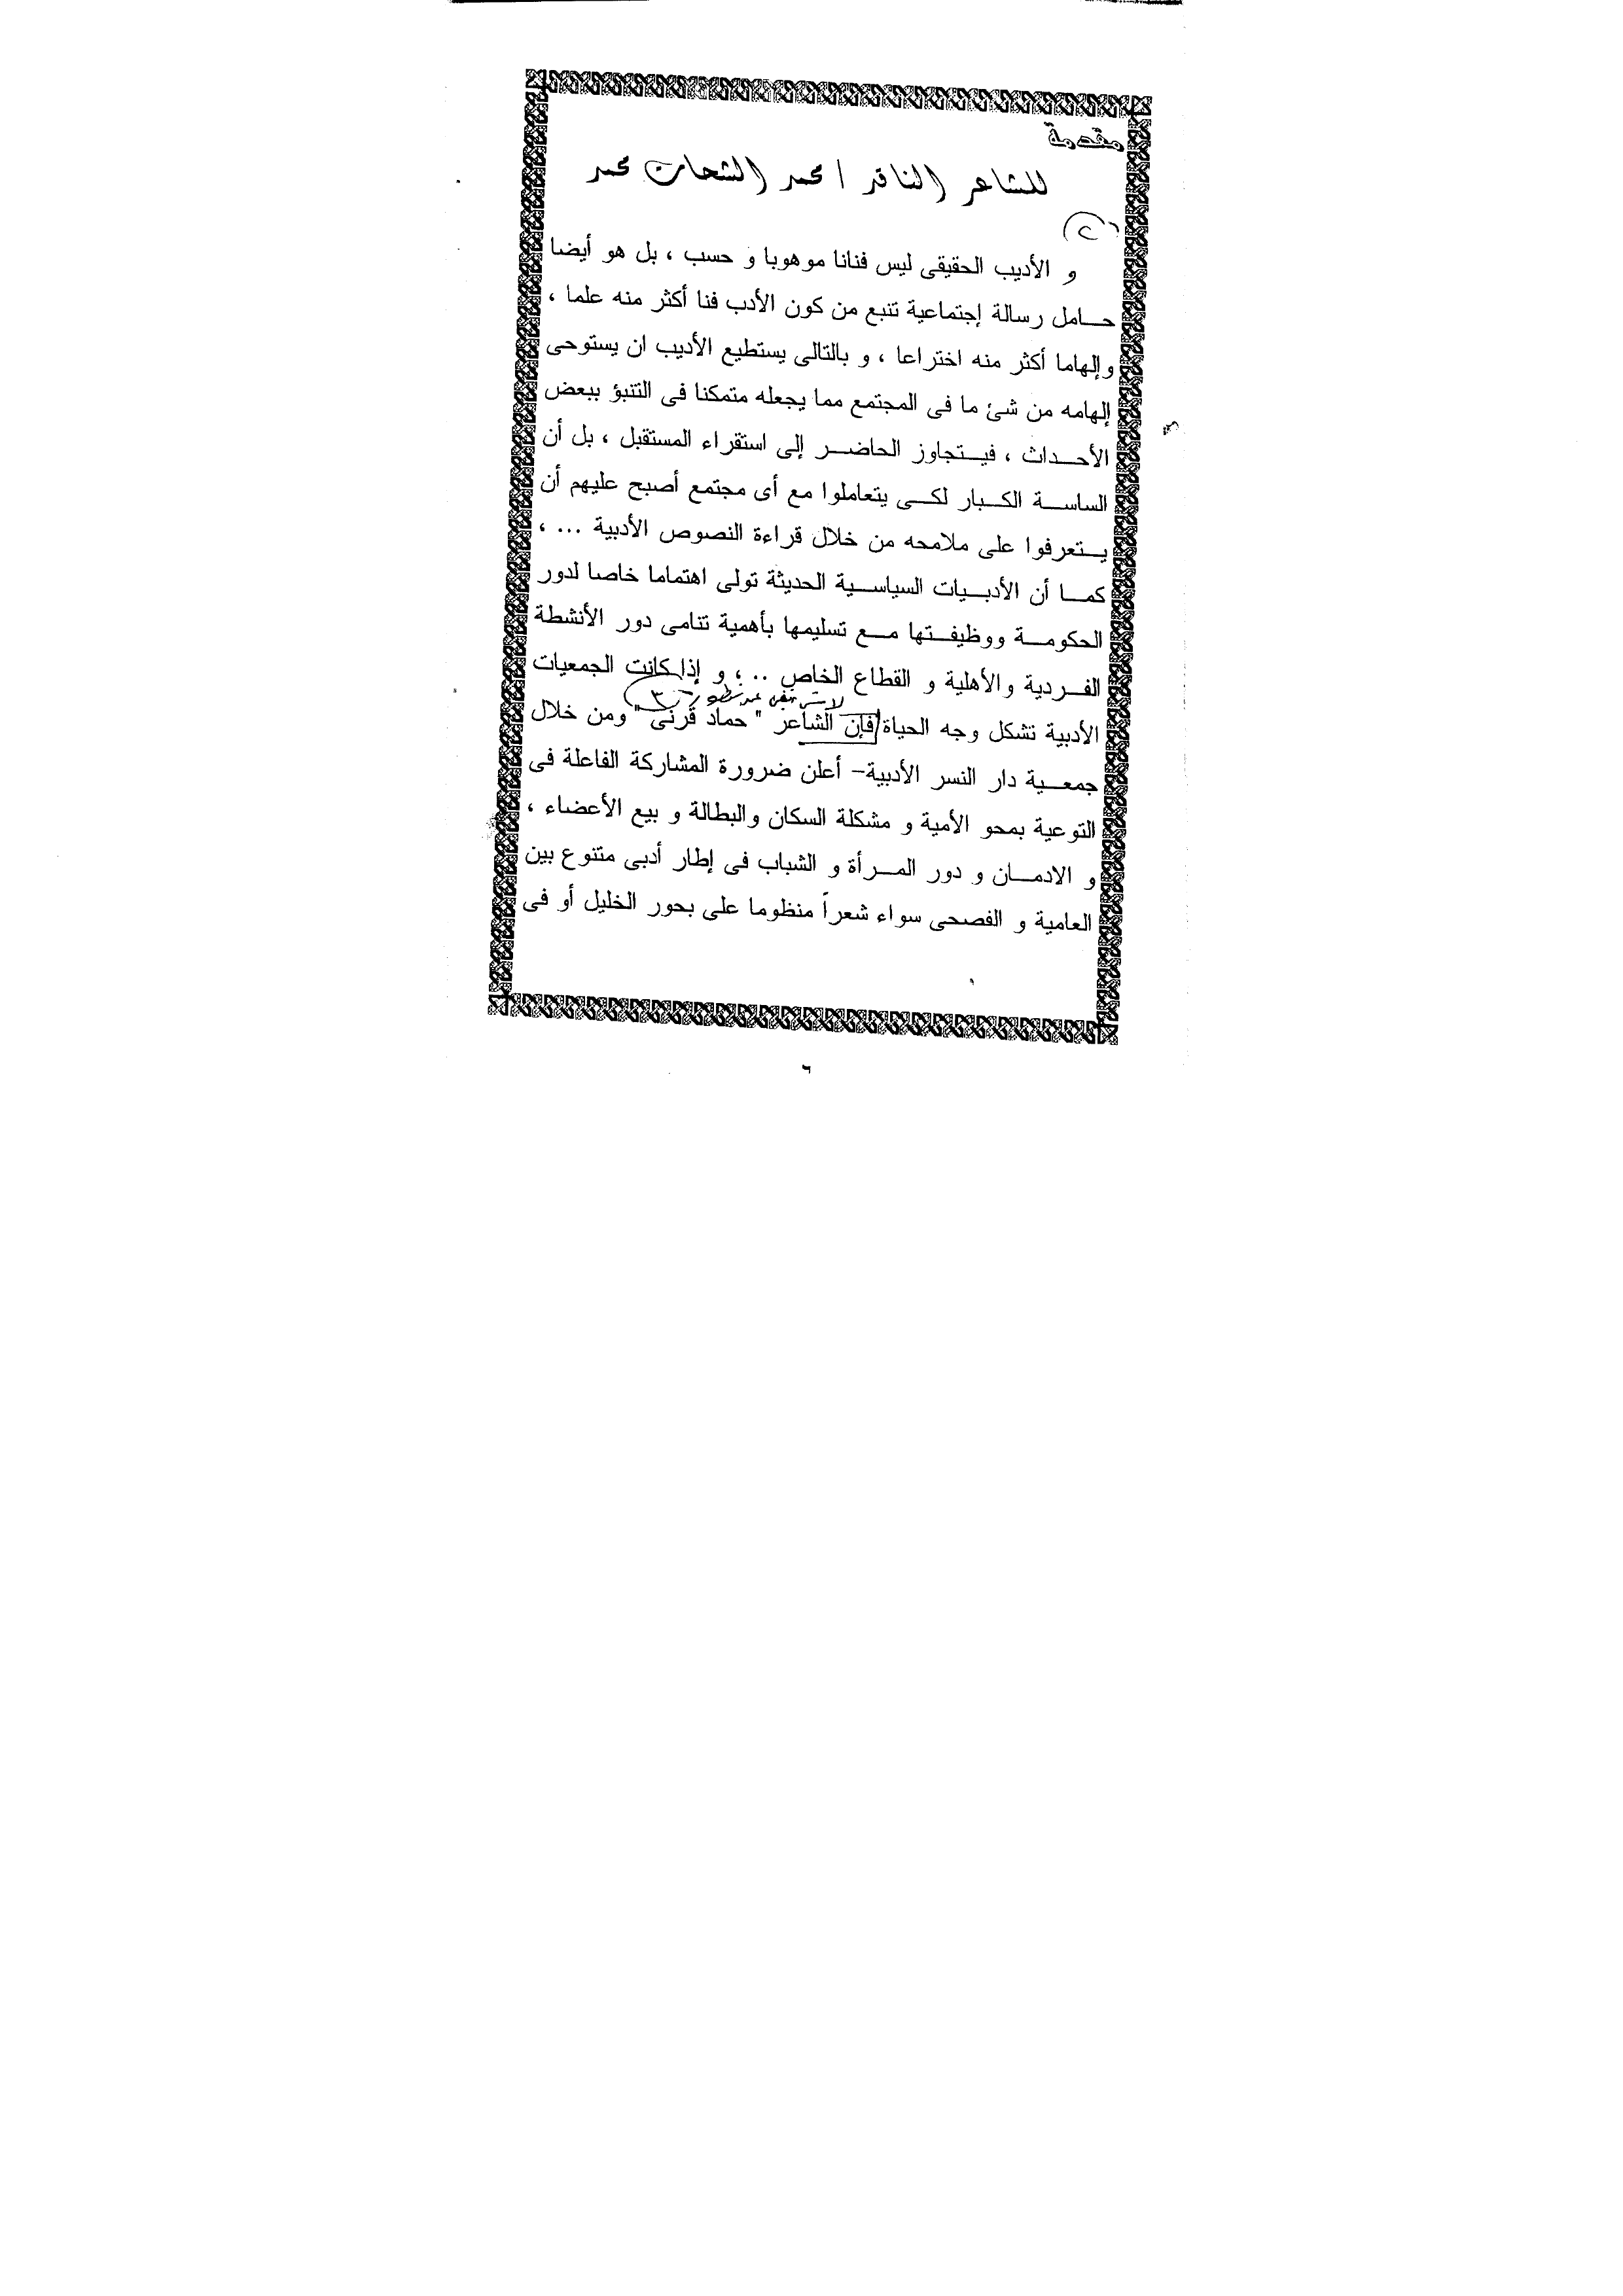 مقدمة
للشاعر الناقد / محمد الشحات محمد
(٢)
و الأديب الحقيقى ليس فنانا موهوبا و حسب ، بل هو أيضا
حامل رسالة إجتماعية تنبع من كون الأدب فنا أكثر منه علما ،
وإلهاما أكثر منه اختراعا ، و بالتالى يستطيع الأديب ان يستوحى
إلهامه من شئ ما فى المجتمع مما يجعله متمكنا فى التنبؤ ببعض
الأحداث ، فيتجاوز الحاضر إلى استقراء المستقبل ، بل أن
الساسة الكبار لكى يتعاملوا مع أى مجتمع أصبح عليهم أن
يتعرفوا على ملامحه من خلال قراءة النصوص الأدبية ... ،
كما أن الأدبيات السياسية الحديثة تولى اهتماما خاصا لدور
الحكومة ووظيفتها مع تسليمها بأهمية تنامى دور الأنشطة
الفردية والأهلية و القطاع الخاص .. ، و إذا كانت الجمعيات
٣
الأدبية تشكل وجه الحياة فإن الشاعر " حماد قرنى " ومن خلال
جمعية دار النسر الأدبية- أعلن ضرورة المشاركة الفاعلة فى
التوعية بمحو الأمية و مشكلة السكان والبطالة و بيع الأعضاء ،
و الادمان و دور المرأة و الشباب فى إطار أدبى متنوع بين
العامية و الفصحى سواء شعراً منظوما على بحور الخليل أو فى
٦